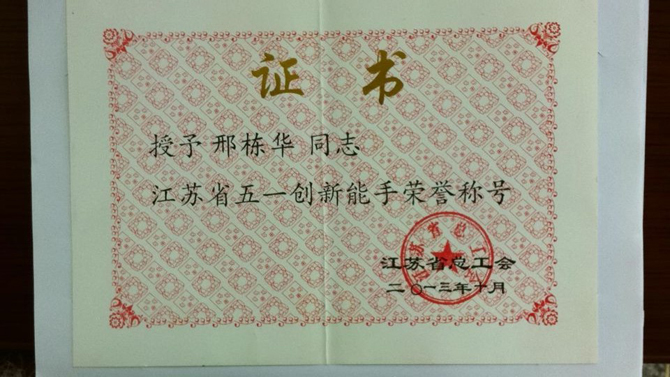 证书
授予 邢栋华 同志
江苏省五一创新能手荣誉称号
江苏省总工会
二〇一三年十月